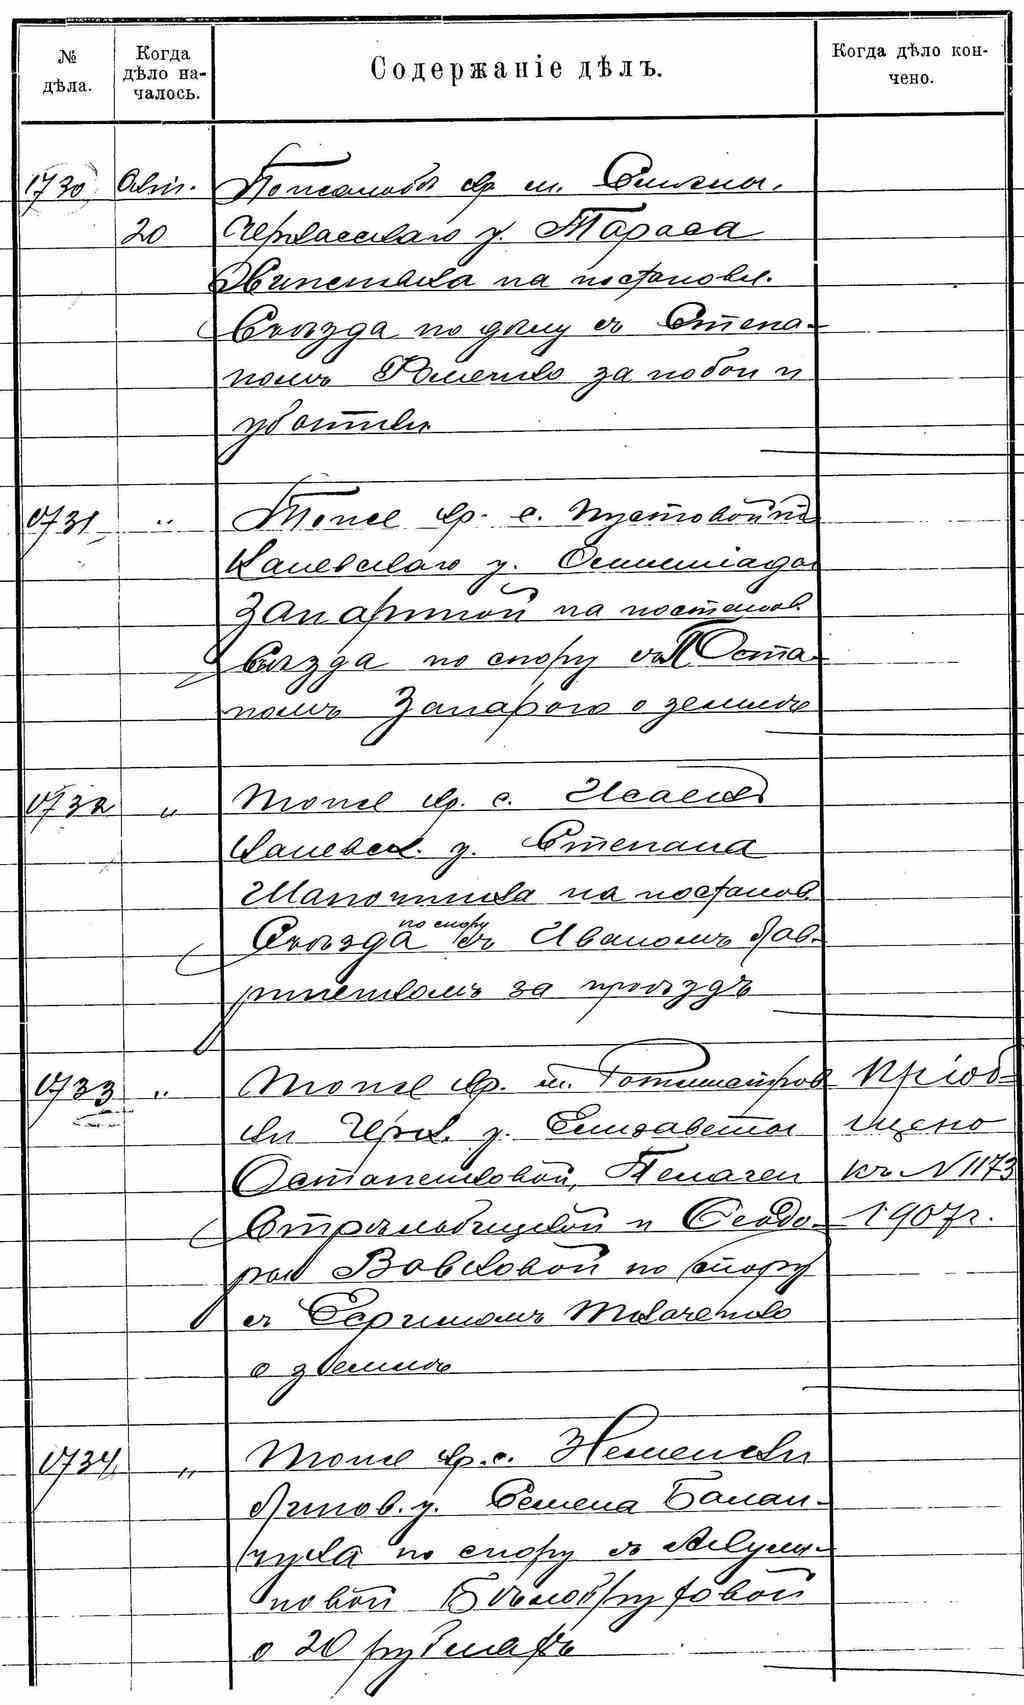 № дѣла.
Когда дѣло началось.
Содержаніе дѣлъ.
Когда дѣло кончено.
1730 Авг. 20
Жалоба кр. м. Смѣлы,
Черкасскаго у. Тараса
на постановл.
Съѣзда по дѣлу съ Степа-
номъ за побои и
убытки
1731 „
Тоже кр. с. Пустовойтъ
Каневскаго у. Олимпіады
Запартой на постанов.
Съѣзда по спору съ Оста-
помъ Запарого о землѣ
1732 „
Тоже кр. с. Исаекъ
Каневск. у. Степана
Шапошника на постанов.
Съѣзда по спору съ Иваномъ Лав-
риненкомъ за проѣздъ
1733 „
Тоже кр. м. Ротмистров-
ки Черк. у. Елизаветы
Остапенковой, Пелагеи
Стрѣлобицкой и Ѳеодо-
ры Вовковой по спору
съ Сергіемъ Ткаченко
о землѣ
Пріоб-
щено
къ № 1173
1907 г.
1734 „
Тоже кр. с.
Липов. у. Семена Балан-
чука по спору съ Акули-
новой
о 20 рубляхъ